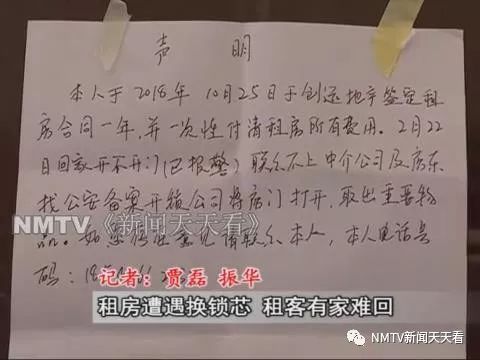 声 明
本人于2018年10月25日于创远地产签定租
房合同一年,并一次性付清租房所有费用。2月22
日回家开不开门(已报警)联系不上中介公司及房东
找公安备案开锁公司将房门打开,取出重要物
品。如您 请联系本人,本人电话号
码:
NMTV《新闻天天看》
记者:贾磊 振华
租房遭遇换锁芯 租客有家难回
NMTV新闻天天看